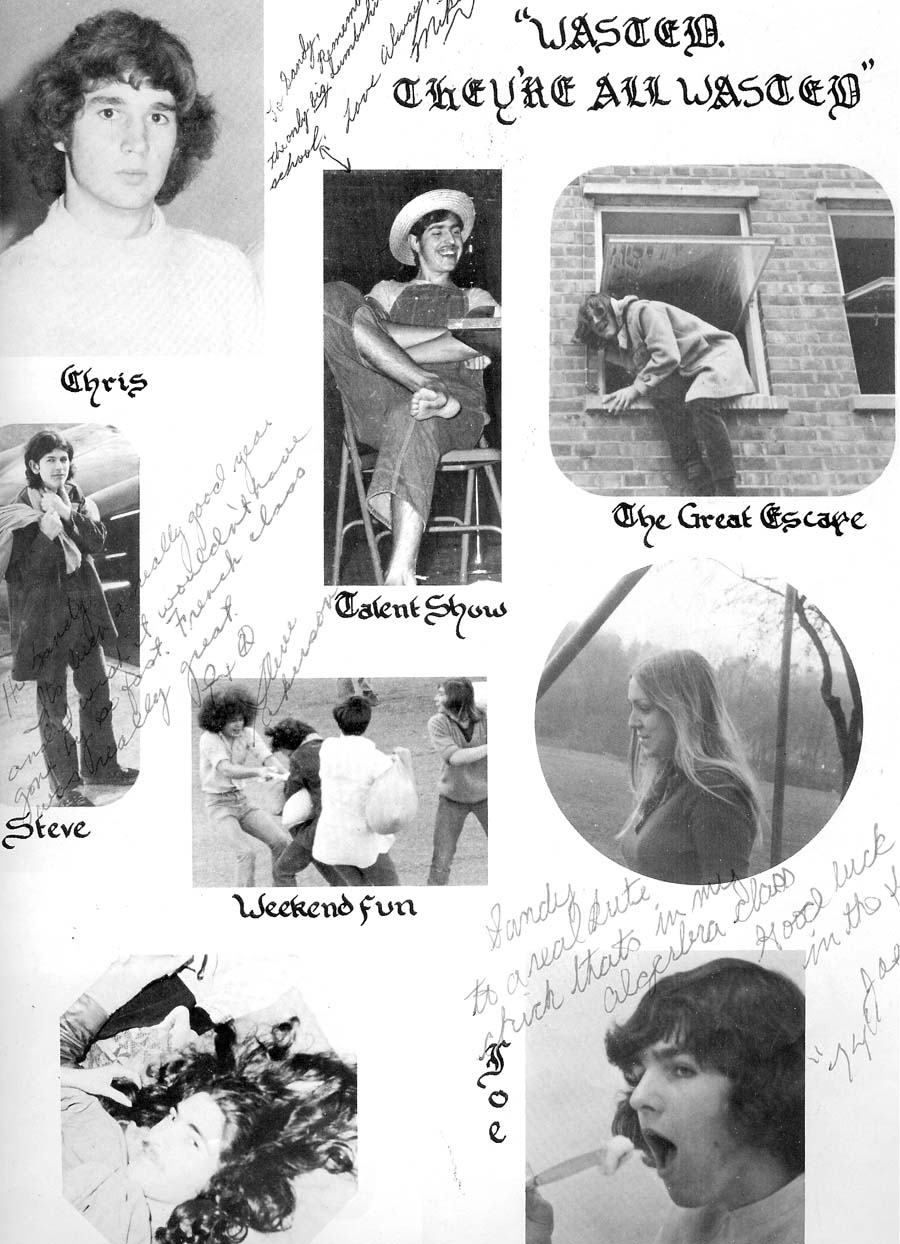 “WASTED.
THEY'RE ALL WASTED”
To Sandy,
Remember
the only big
school. Love Always,
Mike
Chris
Talent Show
The Great Escape
Hi Sandy
really good year
and wish it wouldn't have
gone by so fast. French class
was really great.
Steve
Steve
Weekend Fun
Sandy
to a real cute
chick thats in my
algerbra class
Good luck
in the
Joe
Joe